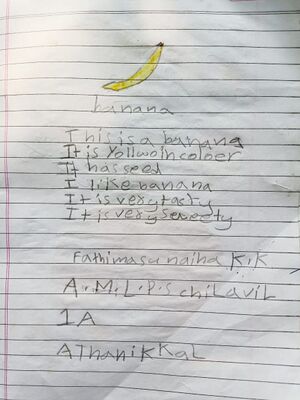 banana
This is a banana
It is Yollwoin colber
It has seed
I like banana
It is very tasty
It is very sweety
Fathima su naiha K.K
A.M.L.P.S chiLaviL
1A
AThaniKKaL